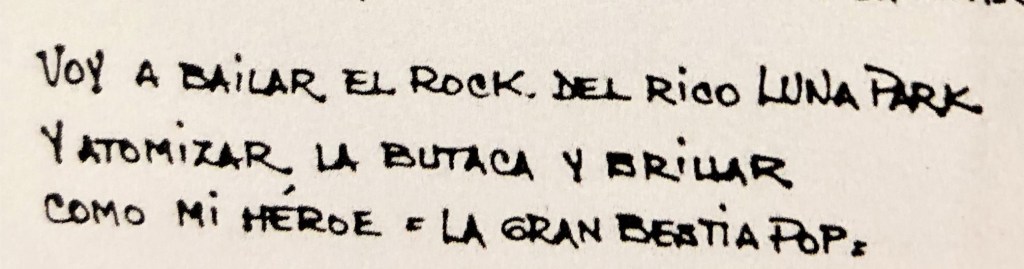 VOY A BAILAR EL ROCK. DEL RICO LUNA PARK
Y ATOMIZAR LA BUTACA Y BRILLAR
COMO MI HÉROE = LA GRAN BESTIA POP =